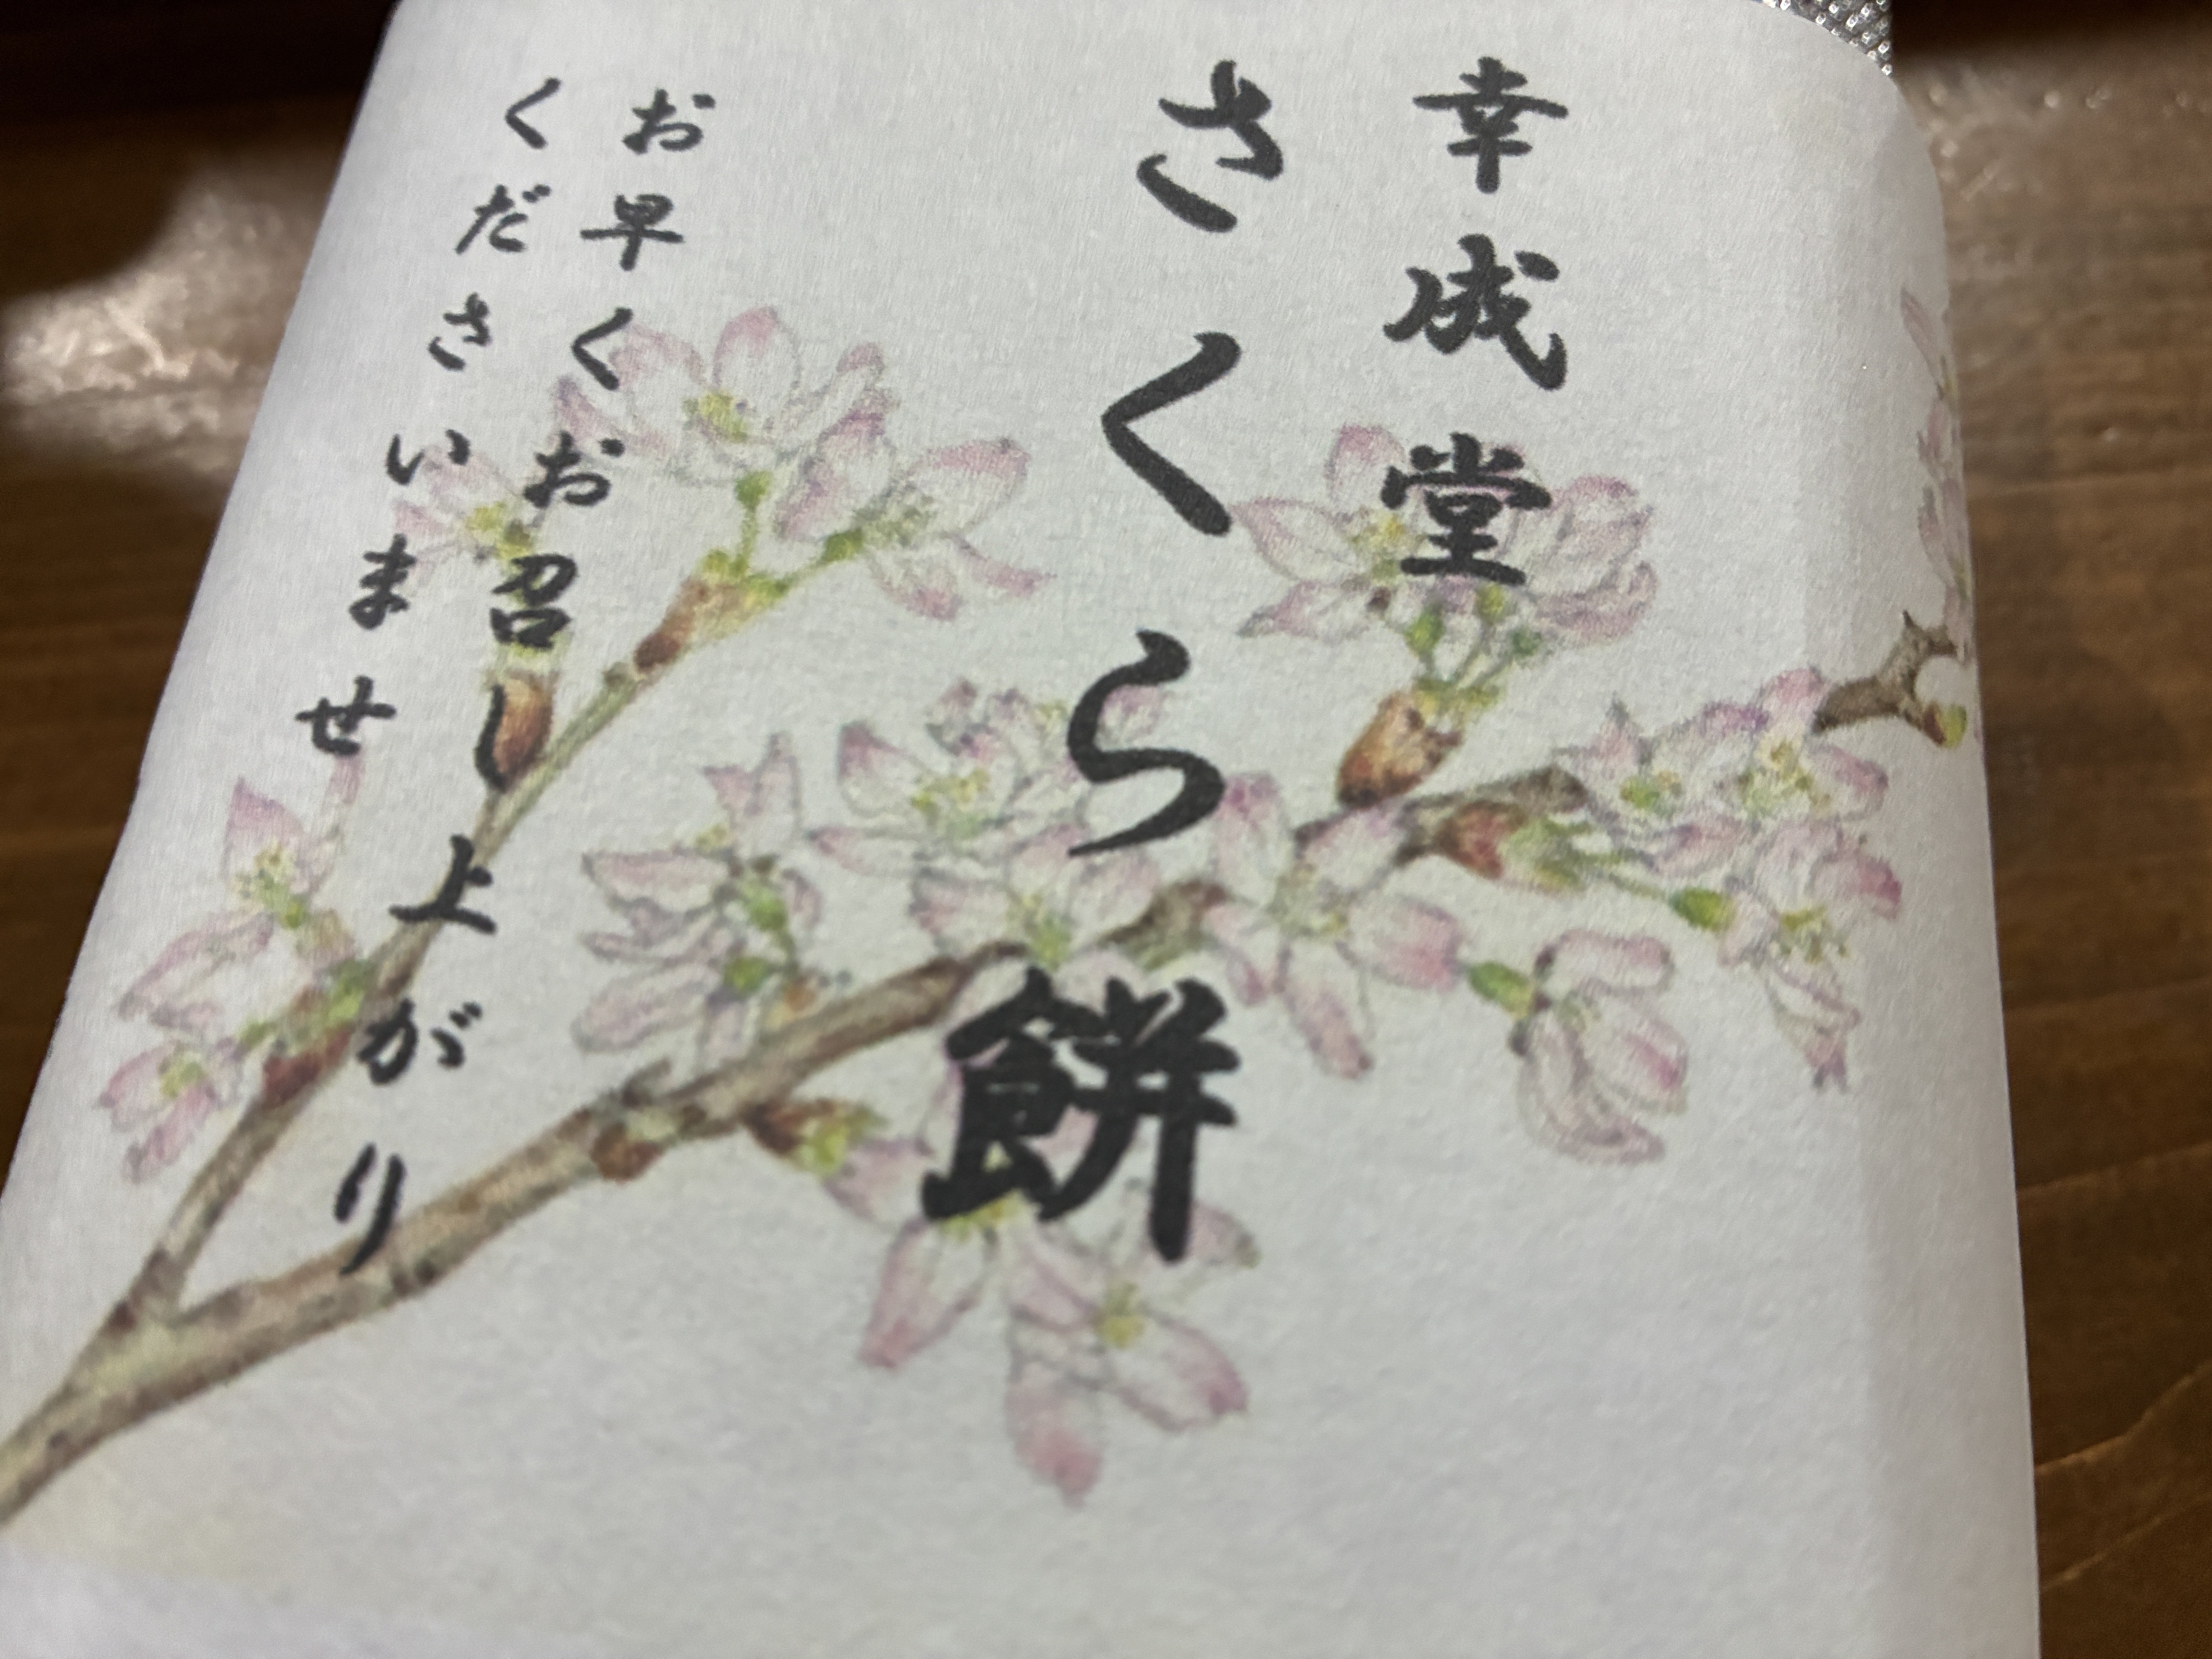 幸成堂
さくら餅
お早くお召し上がり
くださいませ